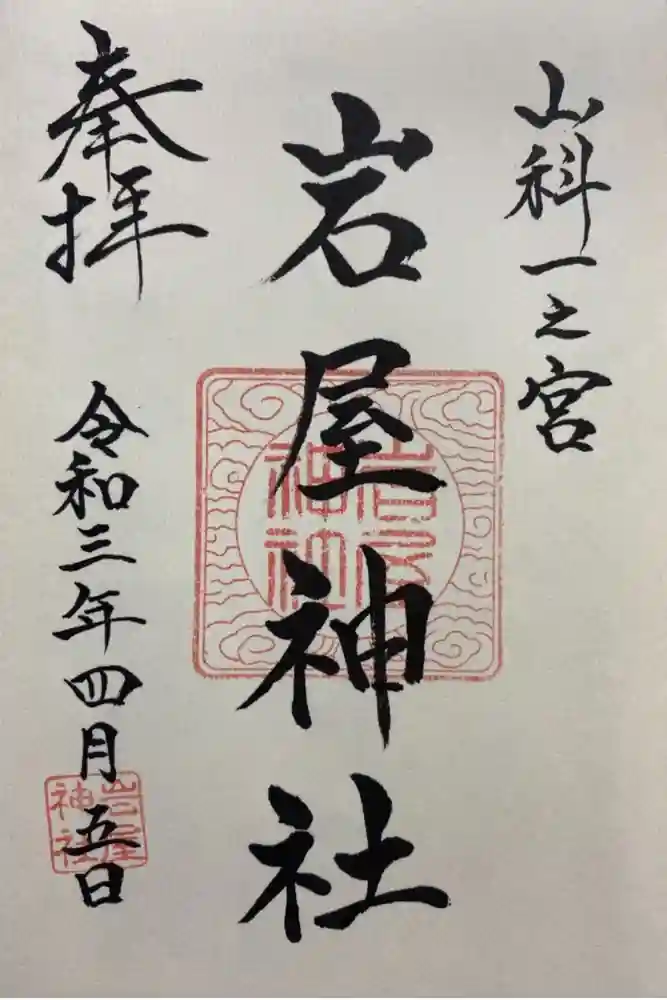 山科一之宮
岩屋神社
奉拝
令和三年四月五日
岩屋
神社
岩屋
神社